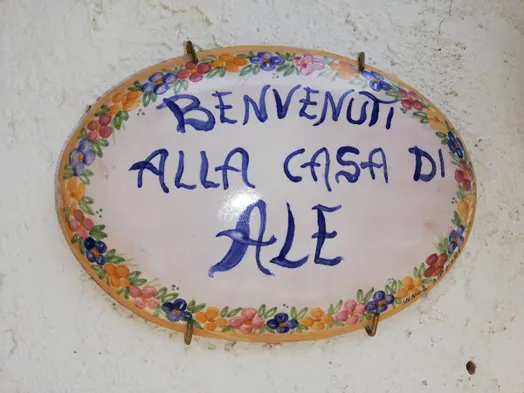 BENVENUTI
ALLA CASA DI
ALE